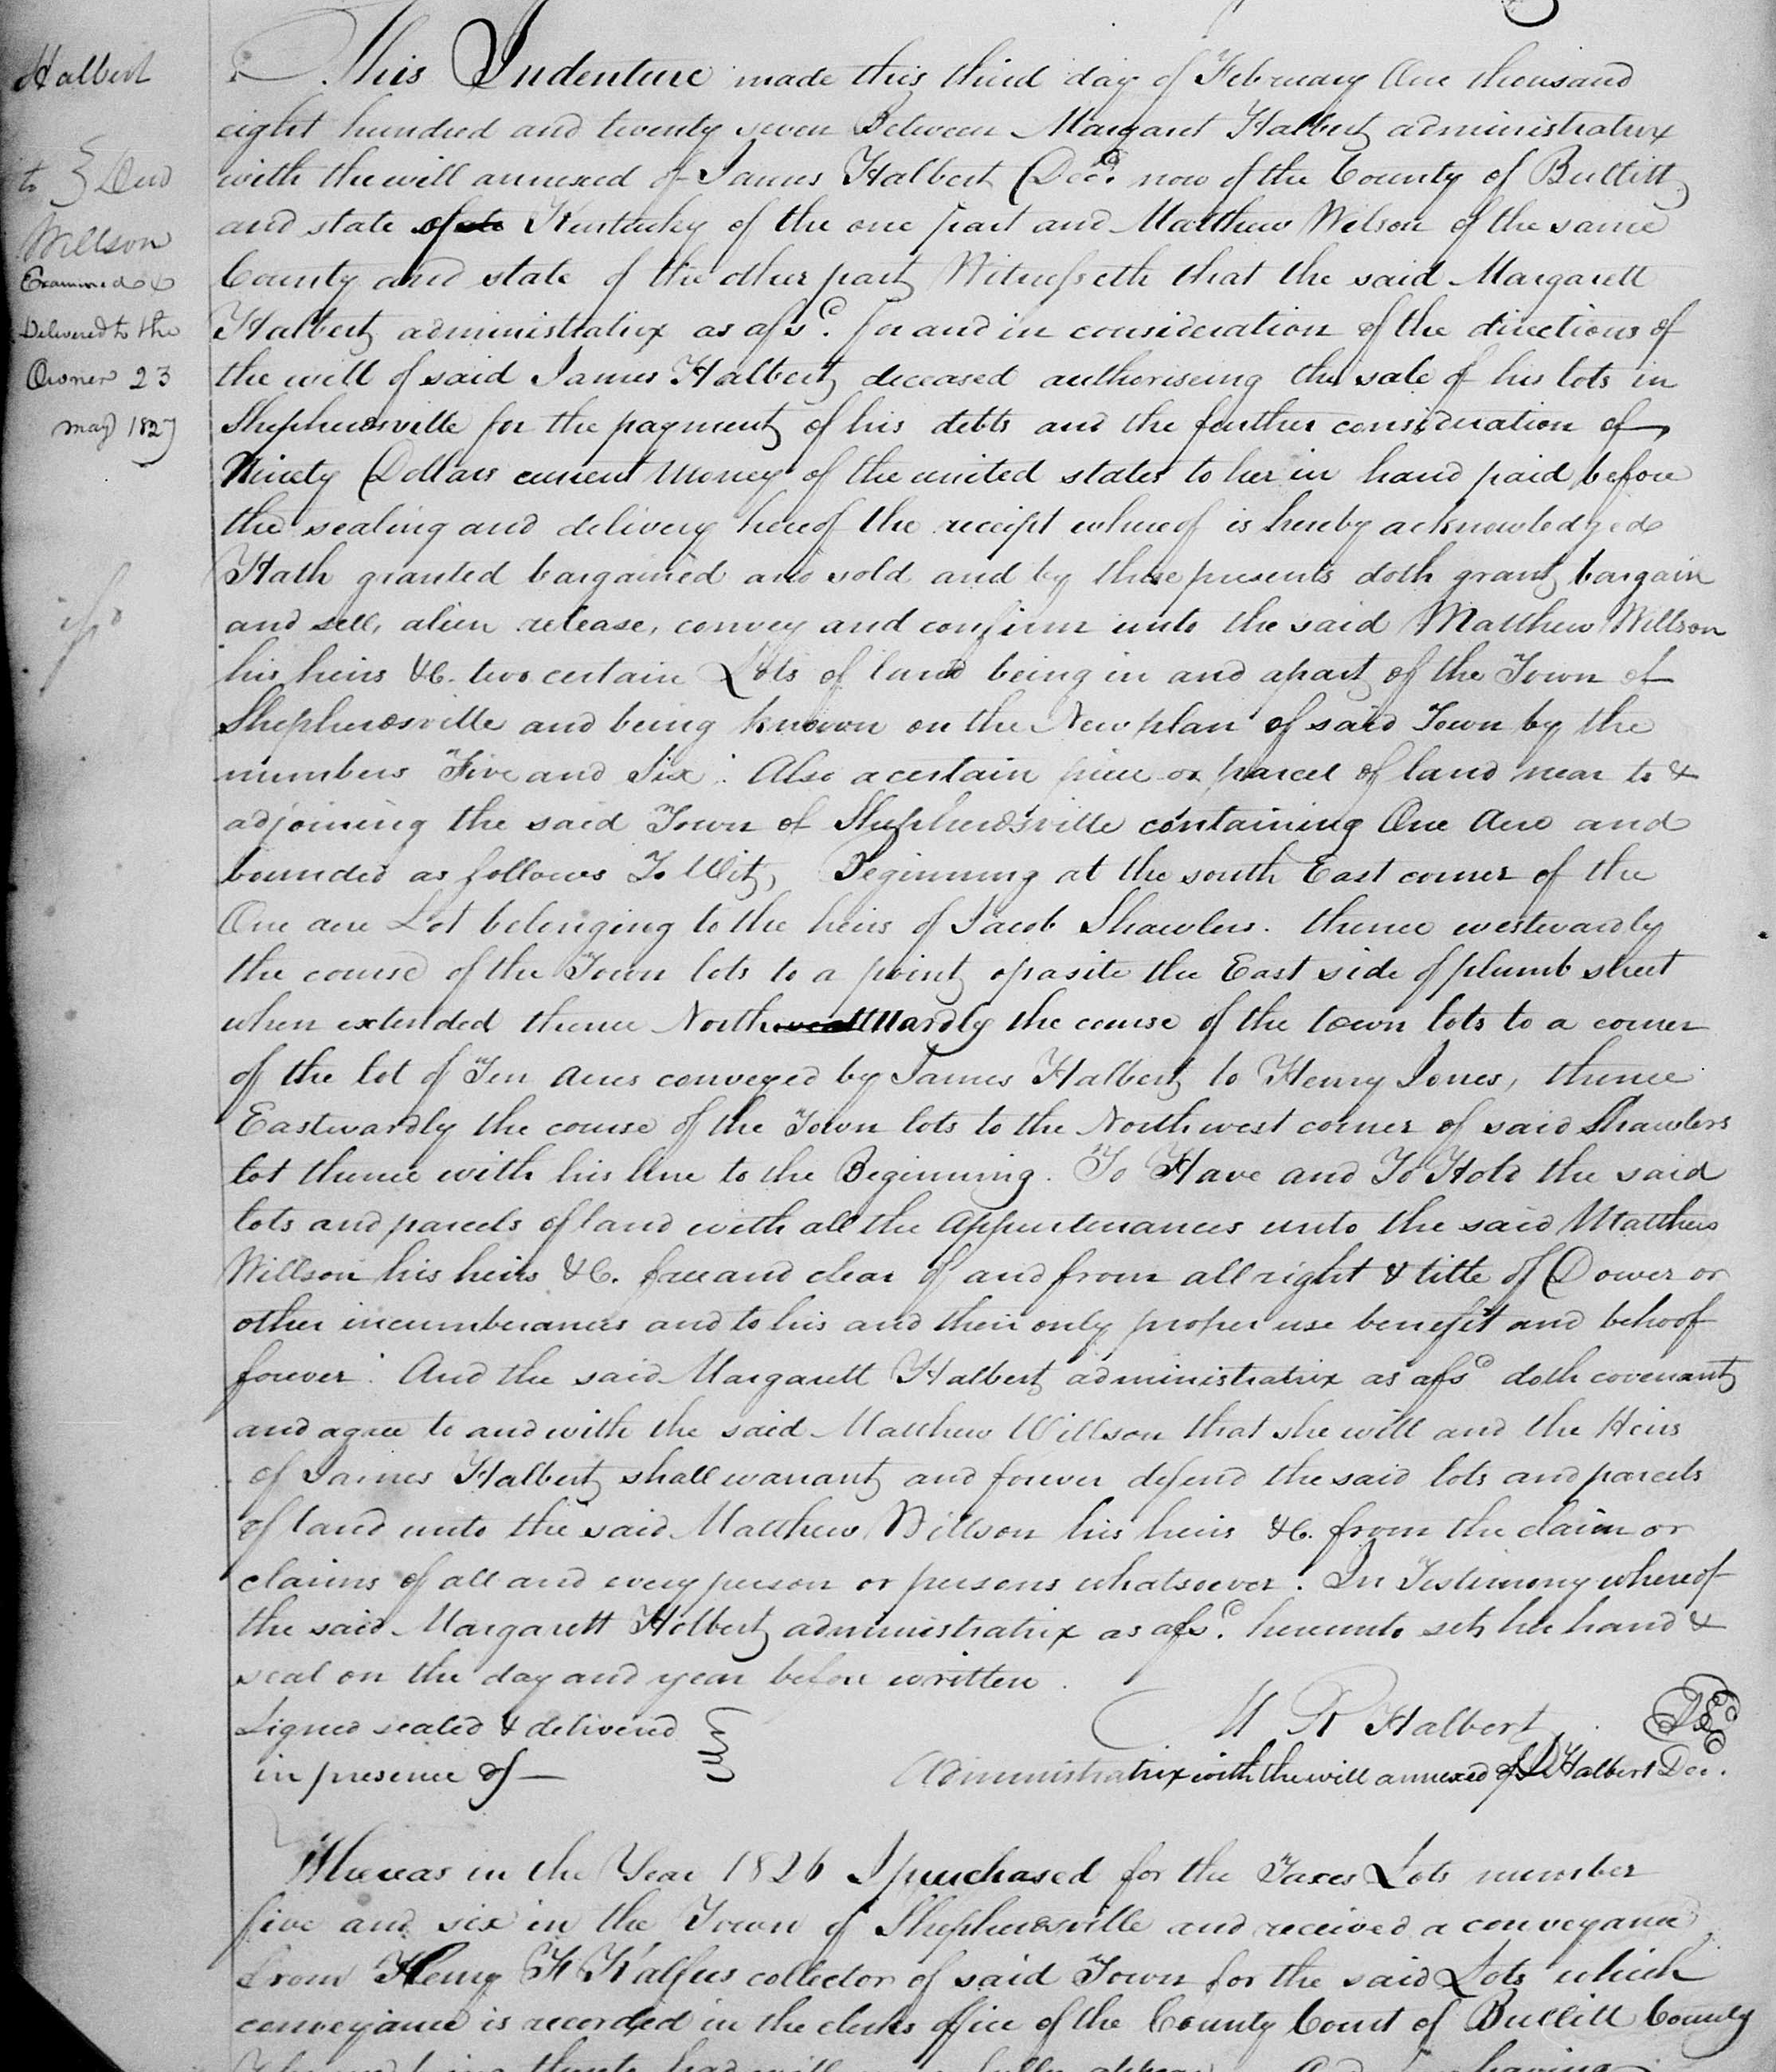 Halbert
to } Deed
Willson
Examined &
Delivered to the
Owner 23
may 1827
This Indenture made this third day of February One thousand
eight hundred and twenty seven Between Margaret Halbert administratrix
with the will annexed of James Halbert Decd. now of the County of Bullitt
and state of Kentucky of the one part and Matthew Wilson of the same
County and state of the other part Witnesseth that the said Margarett
Halbert administratrix as afsd. for and in consideration of the directions of
the will of said James Halbert deceased authoriseing the sale of his lots in
Shepherdsville for the payment of his debts and the further consideration of
Ninety Dollars current money of the united states to her in hand paid before
the sealing and delivery hereof the receipt whereof is hereby acknowledged
Hath granted bargained and sold and by these presents doth grant bargain
and sell, alien release, convey and confirm unto the said Matthew Willson
his heirs &C. two certain Lots of land being in and apart of the Town of
Shepherdsville and being known on the New plan of said Town by the
numbers Five and Six. Also a certain piece or parcel of land near to &
adjoining the said Town of Shepherdsville containing One Acre and
bounded as follows To Wit, Beginning at the south East corner of the
One acre Lot belonging to the heirs of Jacob Shawlers. thence westwardly
the course of the Town lots to a point oposite the East side of plumb street
when extended thence Northwardly the course of the town lots to a corner
of the lot of Ten Acres conveyed by James Halbert to Henry Jones, thence
Eastwardly the course of the Town lots to the Northwest corner of said Shawlers
lot thence with his line to the Beginning. To Have and To Hold the said
lots and parcels of land with all the Appurtenances unto the said Matthew
Willson his heirs &C. free and clear of and from all right & title of Dower or
other incumberances and to his and their only proper use benefit and behoof
forever. And the said Margarett Halbert administratrix as afsd doth covenant
and agree to and with the said Matthew Willson that she will and the Heirs
of James Halbert shall warrant and forever defend the said lots and parcels
of land unto the said Matthew Willson his heirs &C. from the claim or
claims of all and every person or persons whatsoever. In Testimony whereof
the said Margarett Holbert administratrix as afsd. hereunto sets her hand &
seal on the day and year before written.
Signed sealed & delivered }
in presence of —
M R Halbert
Administratrix with the will annexed of J Halbert Decd.
Whereas in the Year 1826 I purchased for the Taxes Lots number
five and six in the Town of Shepherdsville and received a conveyance
from Henry F Kalfus collector of said Town for the said Lots which
conveyance is recorded in the clerks office of the County Court of Bullitt County